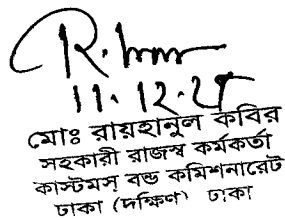 11.12.25
মোঃ রায়হানুল কবির
সহকারী রাজস্ব কর্মকর্তা
কাস্টমস্ বন্ড কমিশনারেট
ঢাকা (দক্ষিণ) ঢাকা